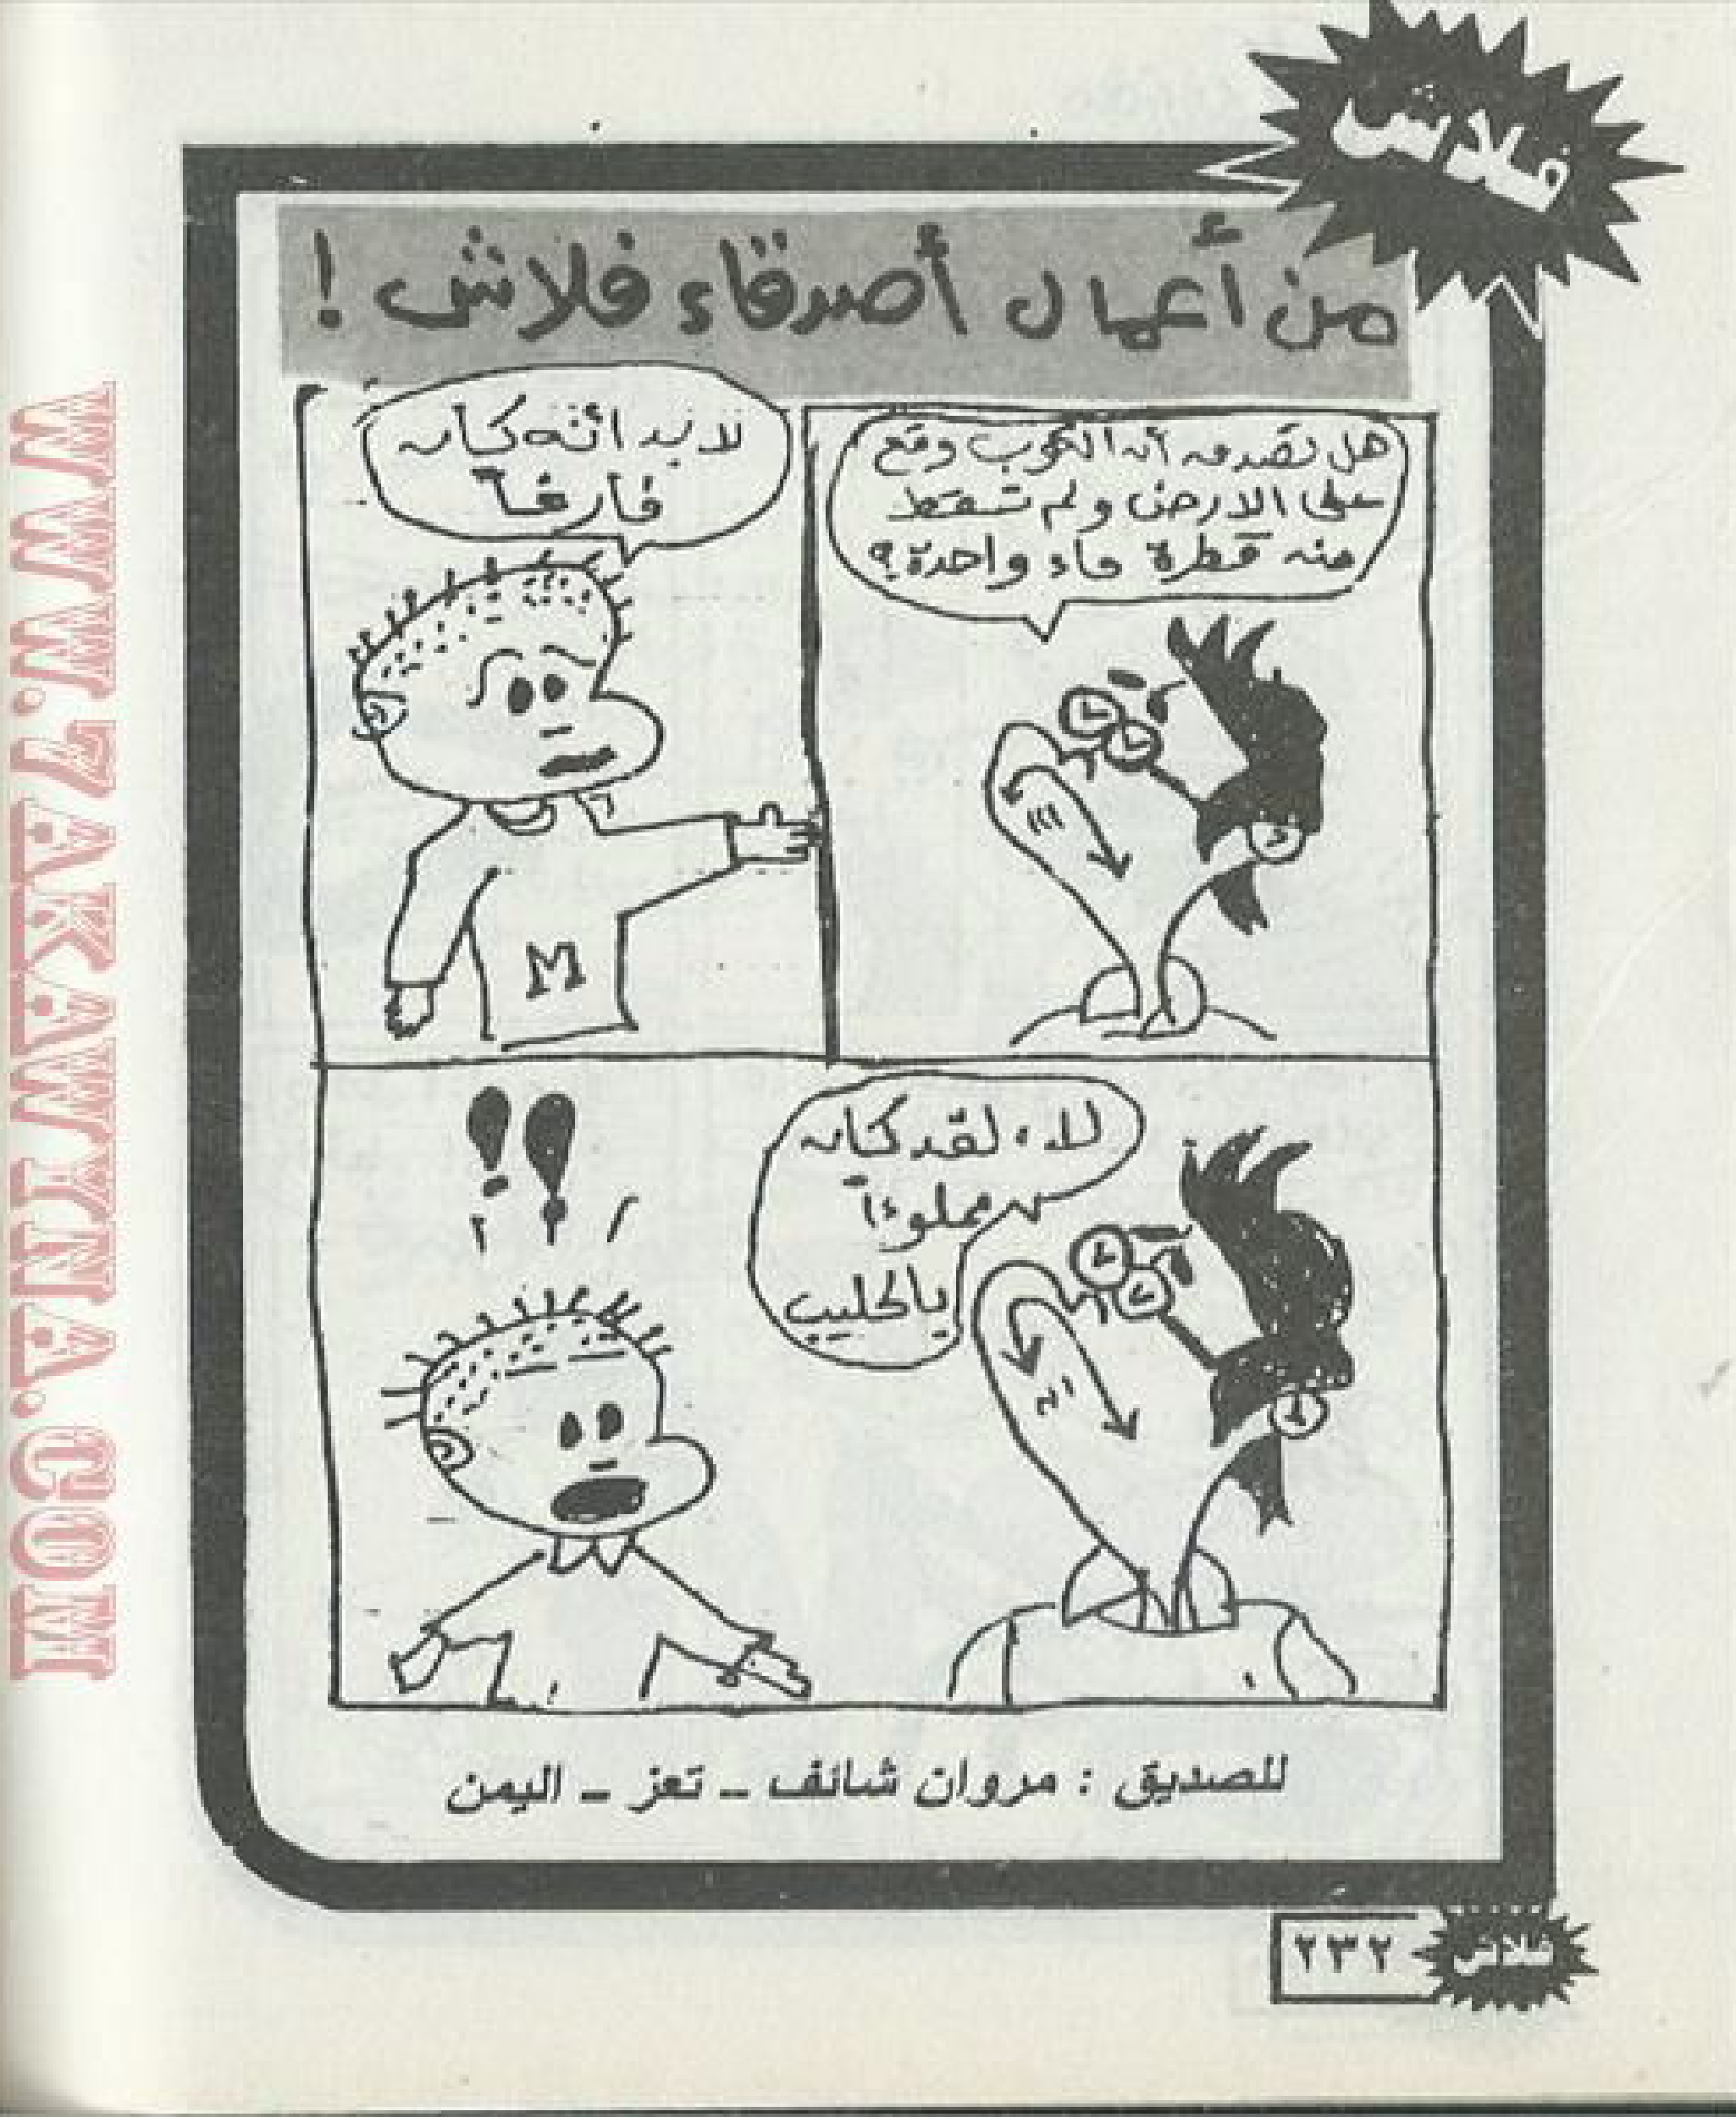 فلاش
من أعمال أصدقاء فلاش !
هل تصدق أن الكوب وقع
على الارض ولم تسقط
منه قطرة ماء واحدة؟
لا بد انه كان
فارغاً
لا، لقد كان
مملوءاً
بالحليب
!!
M
للصديق : مروان شائف - تعز - اليمن
٢٣٢
فلاش
WWW.7AKAWTNA.COM